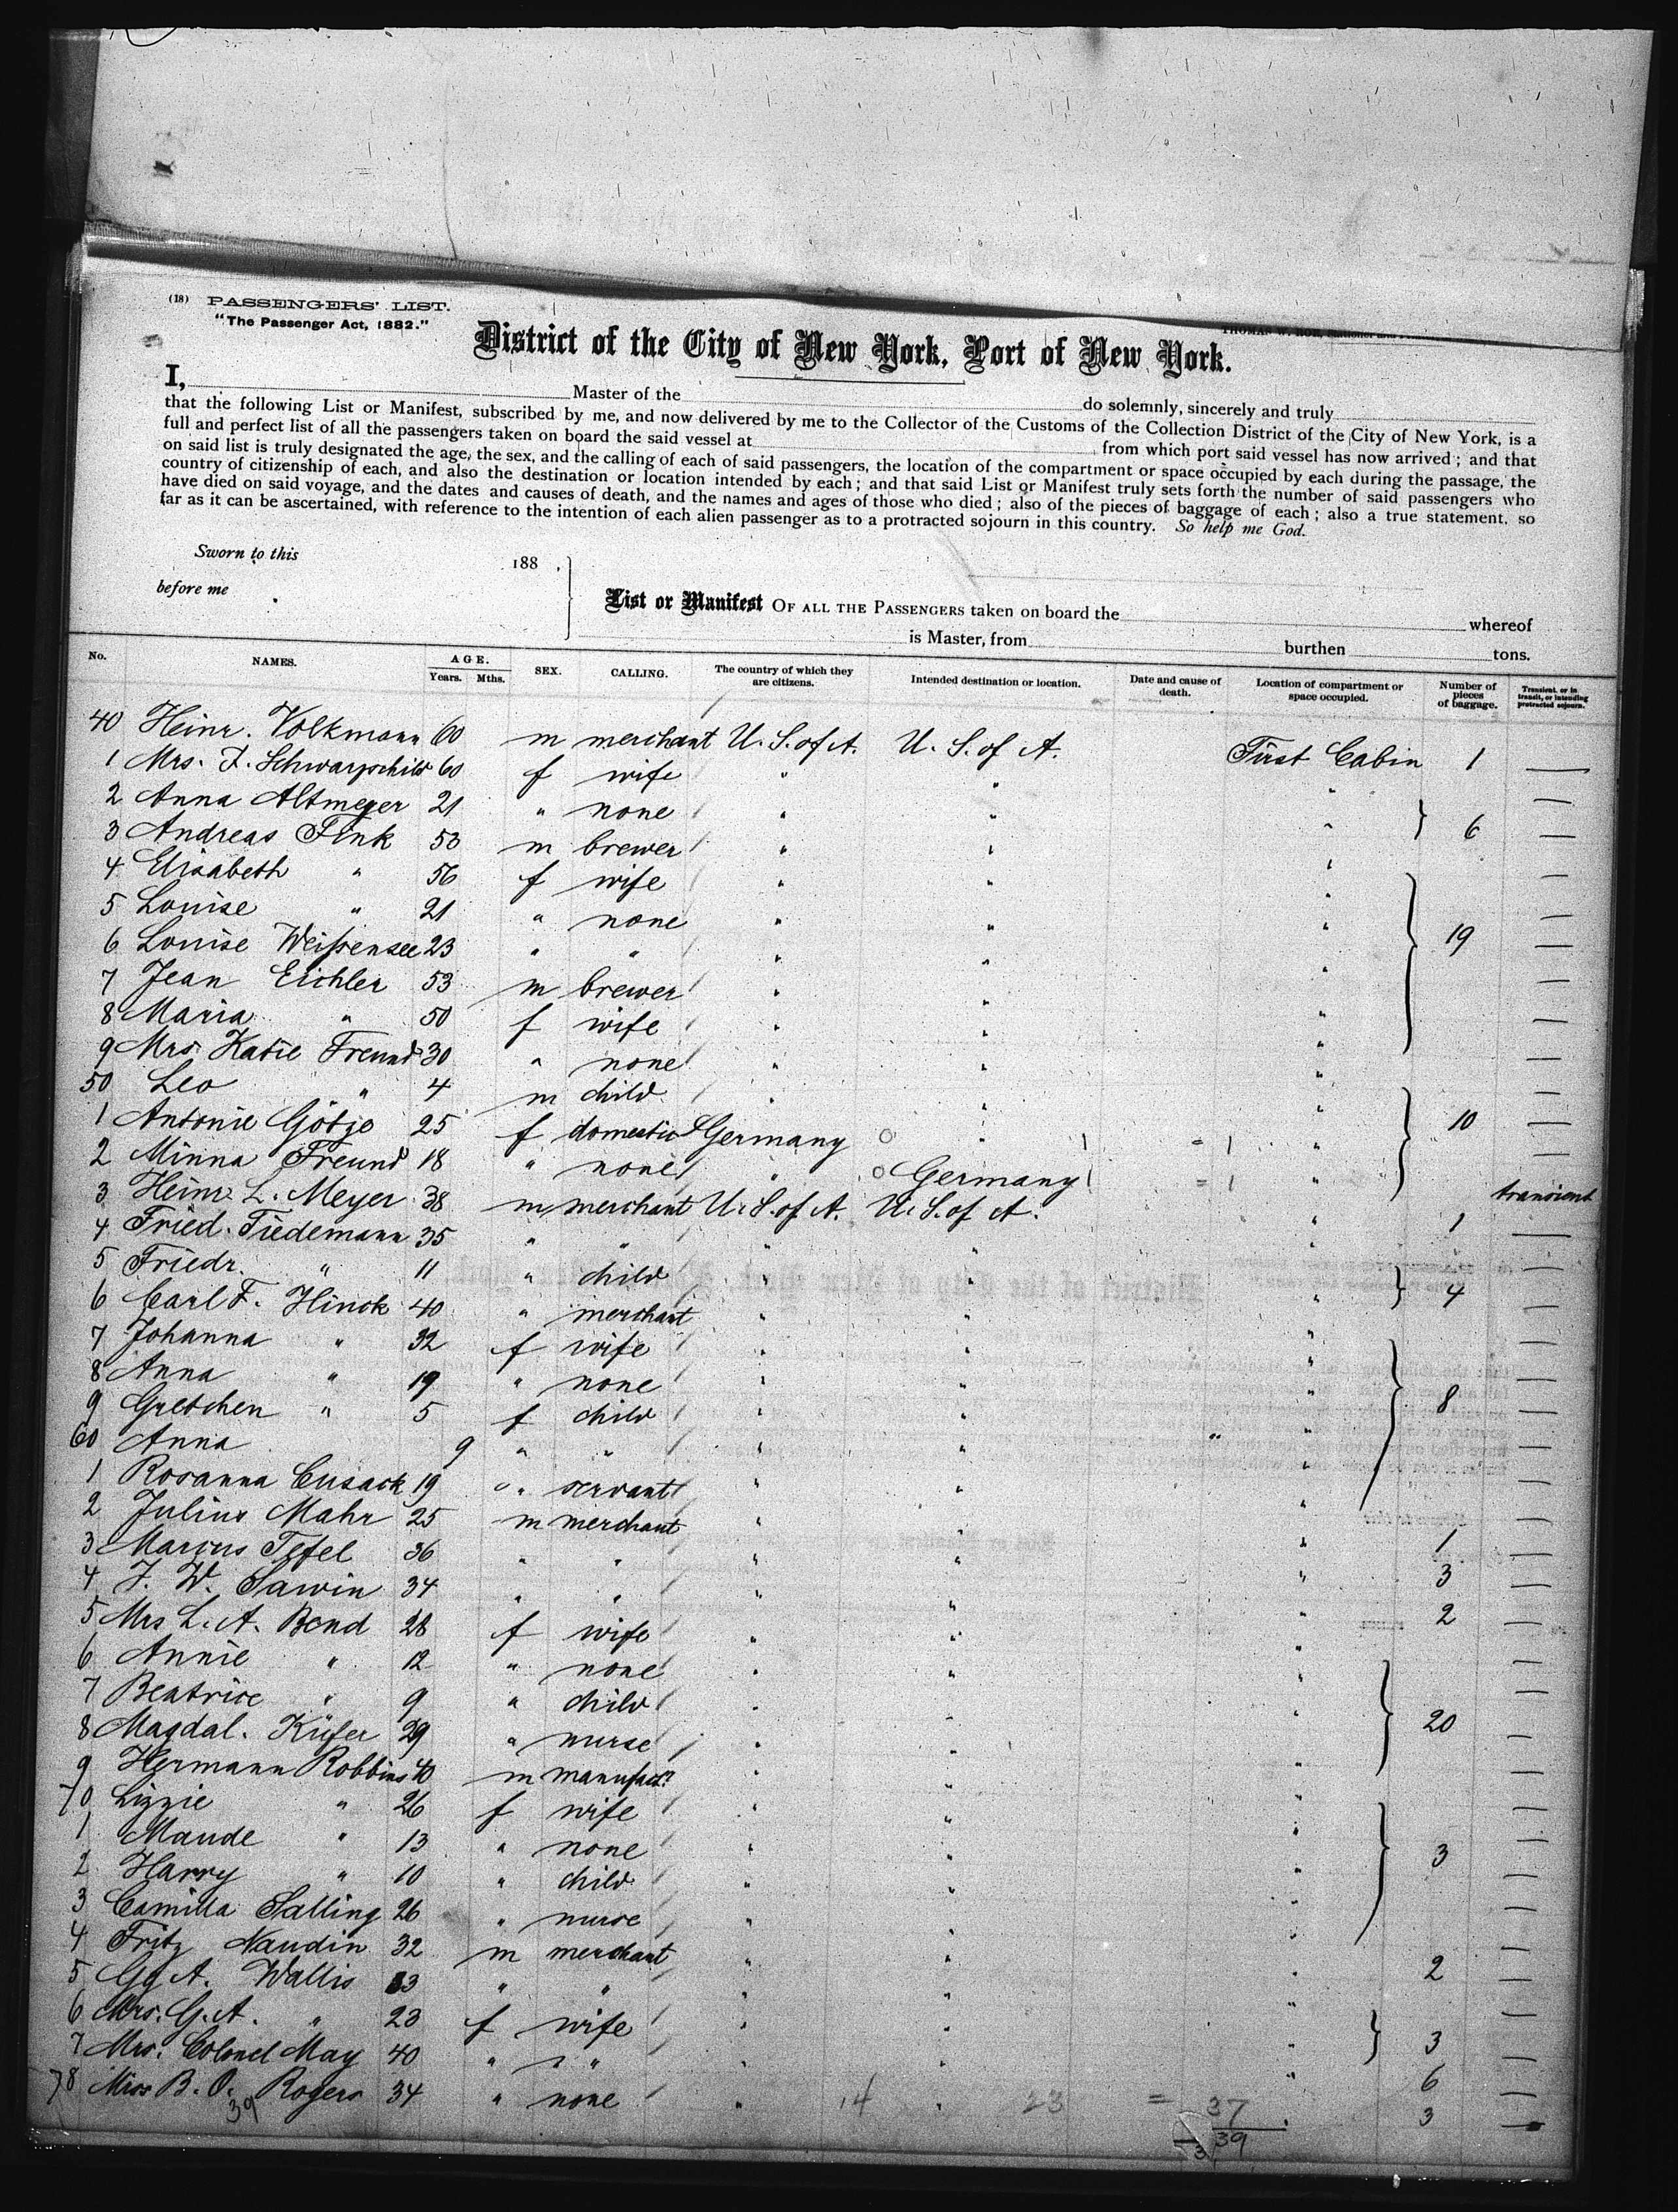 (18) PASSENGERS' LIST.
"The Passenger Act, 1882."
District of the City of New York, Port of New York.
I, Master of the do solemnly, sincerely and truly
that the following List or Manifest, subscribed by me, and now delivered by me to the Collector of the Customs of the Collection District of the City of New York, is a
full and perfect list of all the passengers taken on board the said vessel at from which port said vessel has now arrived; and that
on said list is truly designated the age, the sex, and the calling of each of said passengers, the location of the compartment or space occupied by each during the passage, the
country of citizenship of each, and also the destination or location intended by each; and that said List or Manifest truly sets forth the number of said passengers who
have died on said voyage, and the dates and causes of death, and the names and ages of those who died; also of the pieces of baggage of each; also a true statement, so
far as it can be ascertained, with reference to the intention of each alien passenger as to a protracted sojourn in this country. So help me God.
Sworn to this 188 .
before me
List or Manifest OF ALL THE PASSENGERS taken on board the whereof
is Master, from burthen tons.
No. NAMES. AGE. Years. Mths. SEX. CALLING. The country of which they are citizens. Intended destination or location. Date and cause of death. Location of compartment or space occupied. Number of pieces of baggage. Transient, or in transit, or intending protracted sojourn.
40 Heinr. Volkmann 60 m merchant U.S. of A. U.S. of A. First Cabin 1 —
1 Mrs. F. Schwarzschild 60 f wife " " " —
2 Anna Altmeyer 21 " none " " " } 6 —
3 Andreas Fink 53 m brewer " " " —
4 Elisabeth " 56 f wife " " " —
5 Louise " 21 " none " " " } 19 —
6 Louise Weißensee 23 " " " " " —
7 Jean Eichler 53 m brewer " " " —
8 Maria " 50 f wife " " " —
9 Mrs Katie Freund 30 " none " " " —
50 Leo " 4 m child " " " } 10 —
1 Antonie Götze 25 f domestic Germany " = 1 " —
2 Minna Freund 18 " none " Germany = 1 " transient
3 Heinr. L. Meyer 38 m merchant U.S. of A. U.S. of A. " 1 —
4 Fried. Tiedemann 35 " " " " " —
5 Friedr. " 11 " child " " " } 4 —
6 Carl F. Hinck 40 " merchant " " " —
7 Johanna " 32 f wife " " " —
8 Anna " 19 " none " " " } 8 —
9 Gretchen " 5 f child " " " —
60 Anna 9 " " " " " —
1 Rosanna Cusack 19 " servant " " " —
2 Julius Mahr 25 m merchant " " " 1 —
3 Marcus Tefel 36 " " " " " 3 —
4 J. W. Sawin 34 " " " " " 2 —
5 Mrs L. A. Bend 28 f wife " " " —
6 Annie " 12 " none " " " —
7 Beatrice " 9 " child " " " } 20 —
8 Magdal. Küfer 29 " nurse " " " —
9 Hermann Robbins 40 m manufact. " " " —
70 Lizzie " 26 f wife " " " —
1 Maude " 13 " none " " " } 3 —
2 Harry " 10 " child " " " —
3 Camilla Salling 26 " nurse " " " —
4 Fritz Naudin 32 m merchant " " " 2 —
5 Gg A. Wallis 33 " " " " " —
6 Mrs. G. A. " 23 f wife " " " } 3 —
7 Mrs. Colonel May 40 " " " " " 6 —
78 Miss B. O. Rogers 34 " none " " " 3 —
39 14 23 = 37
39